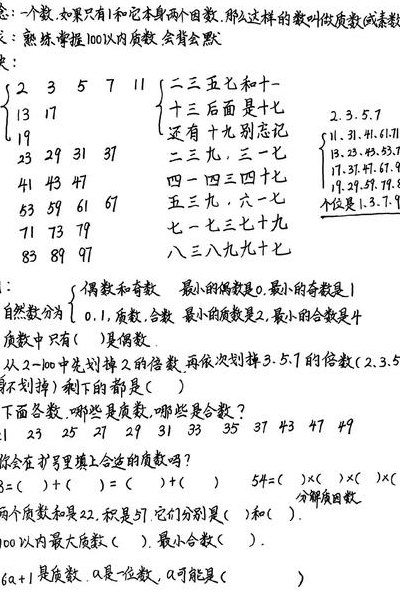 念:一个数,如果只有1和它本身两个因数,那么这样的数叫做质数(或素数
求:熟练掌握100以内质数,会背会默
决:
2 3 5 7 11 二三五七和十一
13 17 十三后面是十七
19 还有十九别忘记
23 29 31 37 二三九,三一七
41 43 47 四一四三四十七
53 59 61 67 五三九,六一七
71 73 79 七一七三七十九
83 89 97 八三八九九十七
2.3.5.7
11.31.41.61.71
13.23.43.53.7
17.37.47.67.9
19.29.59.79.8
个位是1.3.7.9
:
自然数分为
偶数和奇数 最小的偶数是0,最小的奇数是1
0,1,质数,合数 最小的质数是2,最小的合数是4
质数中只有( )是偶数
从2-100中先划掉2的倍数,再依次划掉3.5.7的倍数(2.3.5
不划掉)剩下的都是( )
下面各数,哪些是质数,哪些是合数?
1 23 25 27 29 31 33 35 37 43 47 49
你会在扩号里填上合适的质数吗?
8=( )+( )=( )+( ) 54=( )×( )×( )×(
分解质因数
两个质数和是22,积是57.它们分别是( )和( ).
100以内最大质数( ).最小合数( ).
6a+1是质数.a是一位数,a可能是( )